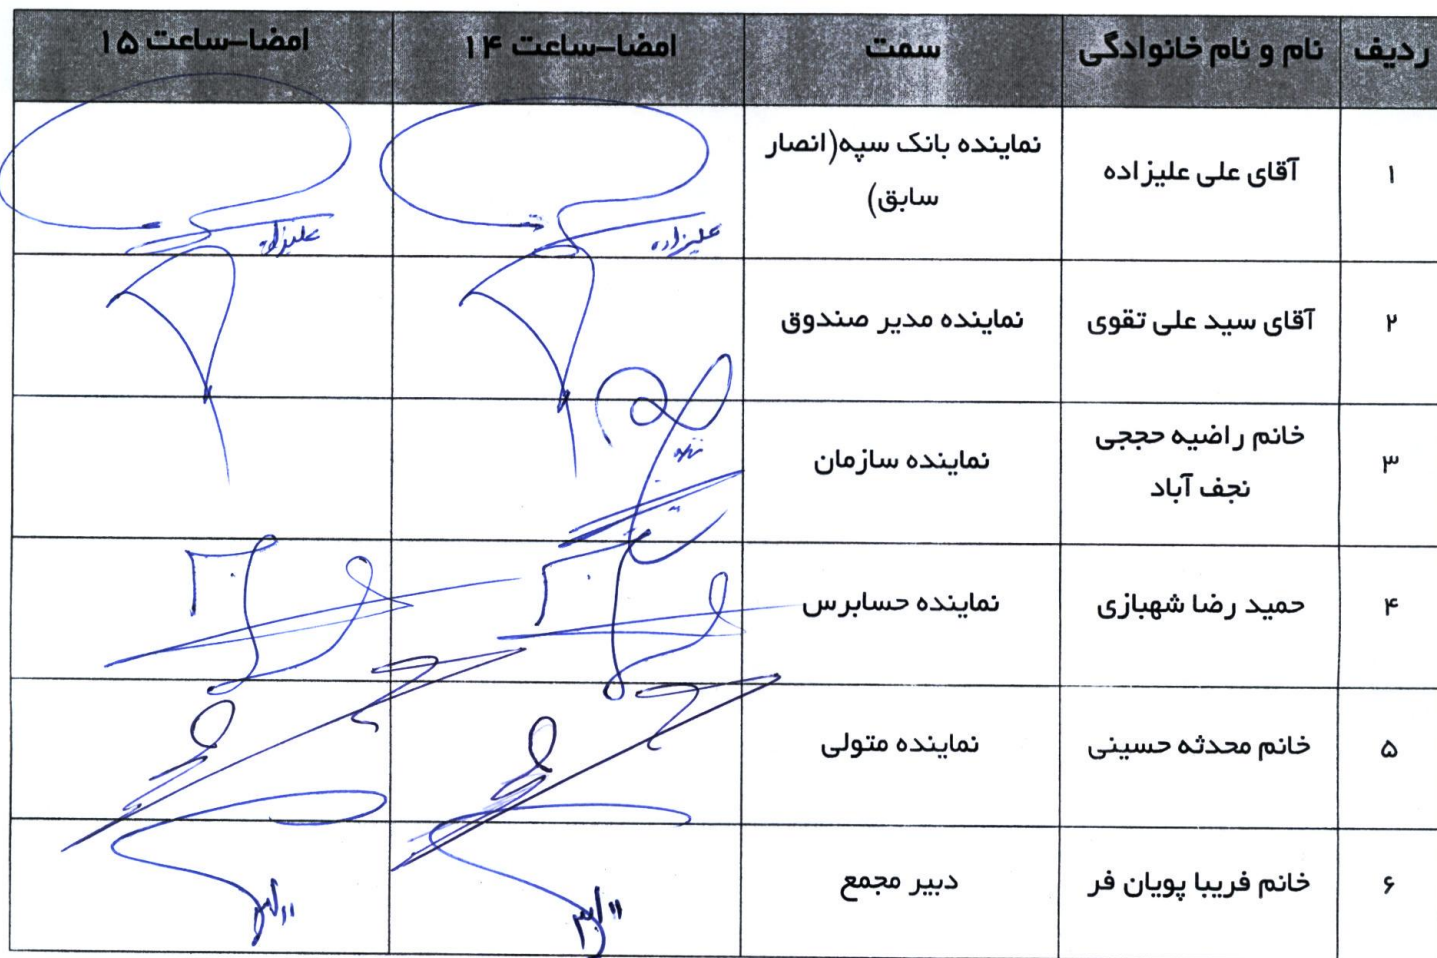 ردیف نام و نام خانوادگی سمت امضا-ساعت ۱۴ امضا-ساعت ۱۵
۱ آقای علی علیزاده نماینده بانک سپه(انصار
سابق)
علیزاده علیزاده
۲ آقای سید علی تقوی نماینده مدیر صندوق
خانم راضیه حججی
۳ نماینده سازمان
نجف آباد
۴ حمید رضا شهبازی نماینده حسابرس
۵ خانم محدثه حسینی نماینده متولی
۶ خانم فریبا پویان فر دبیر مجمع